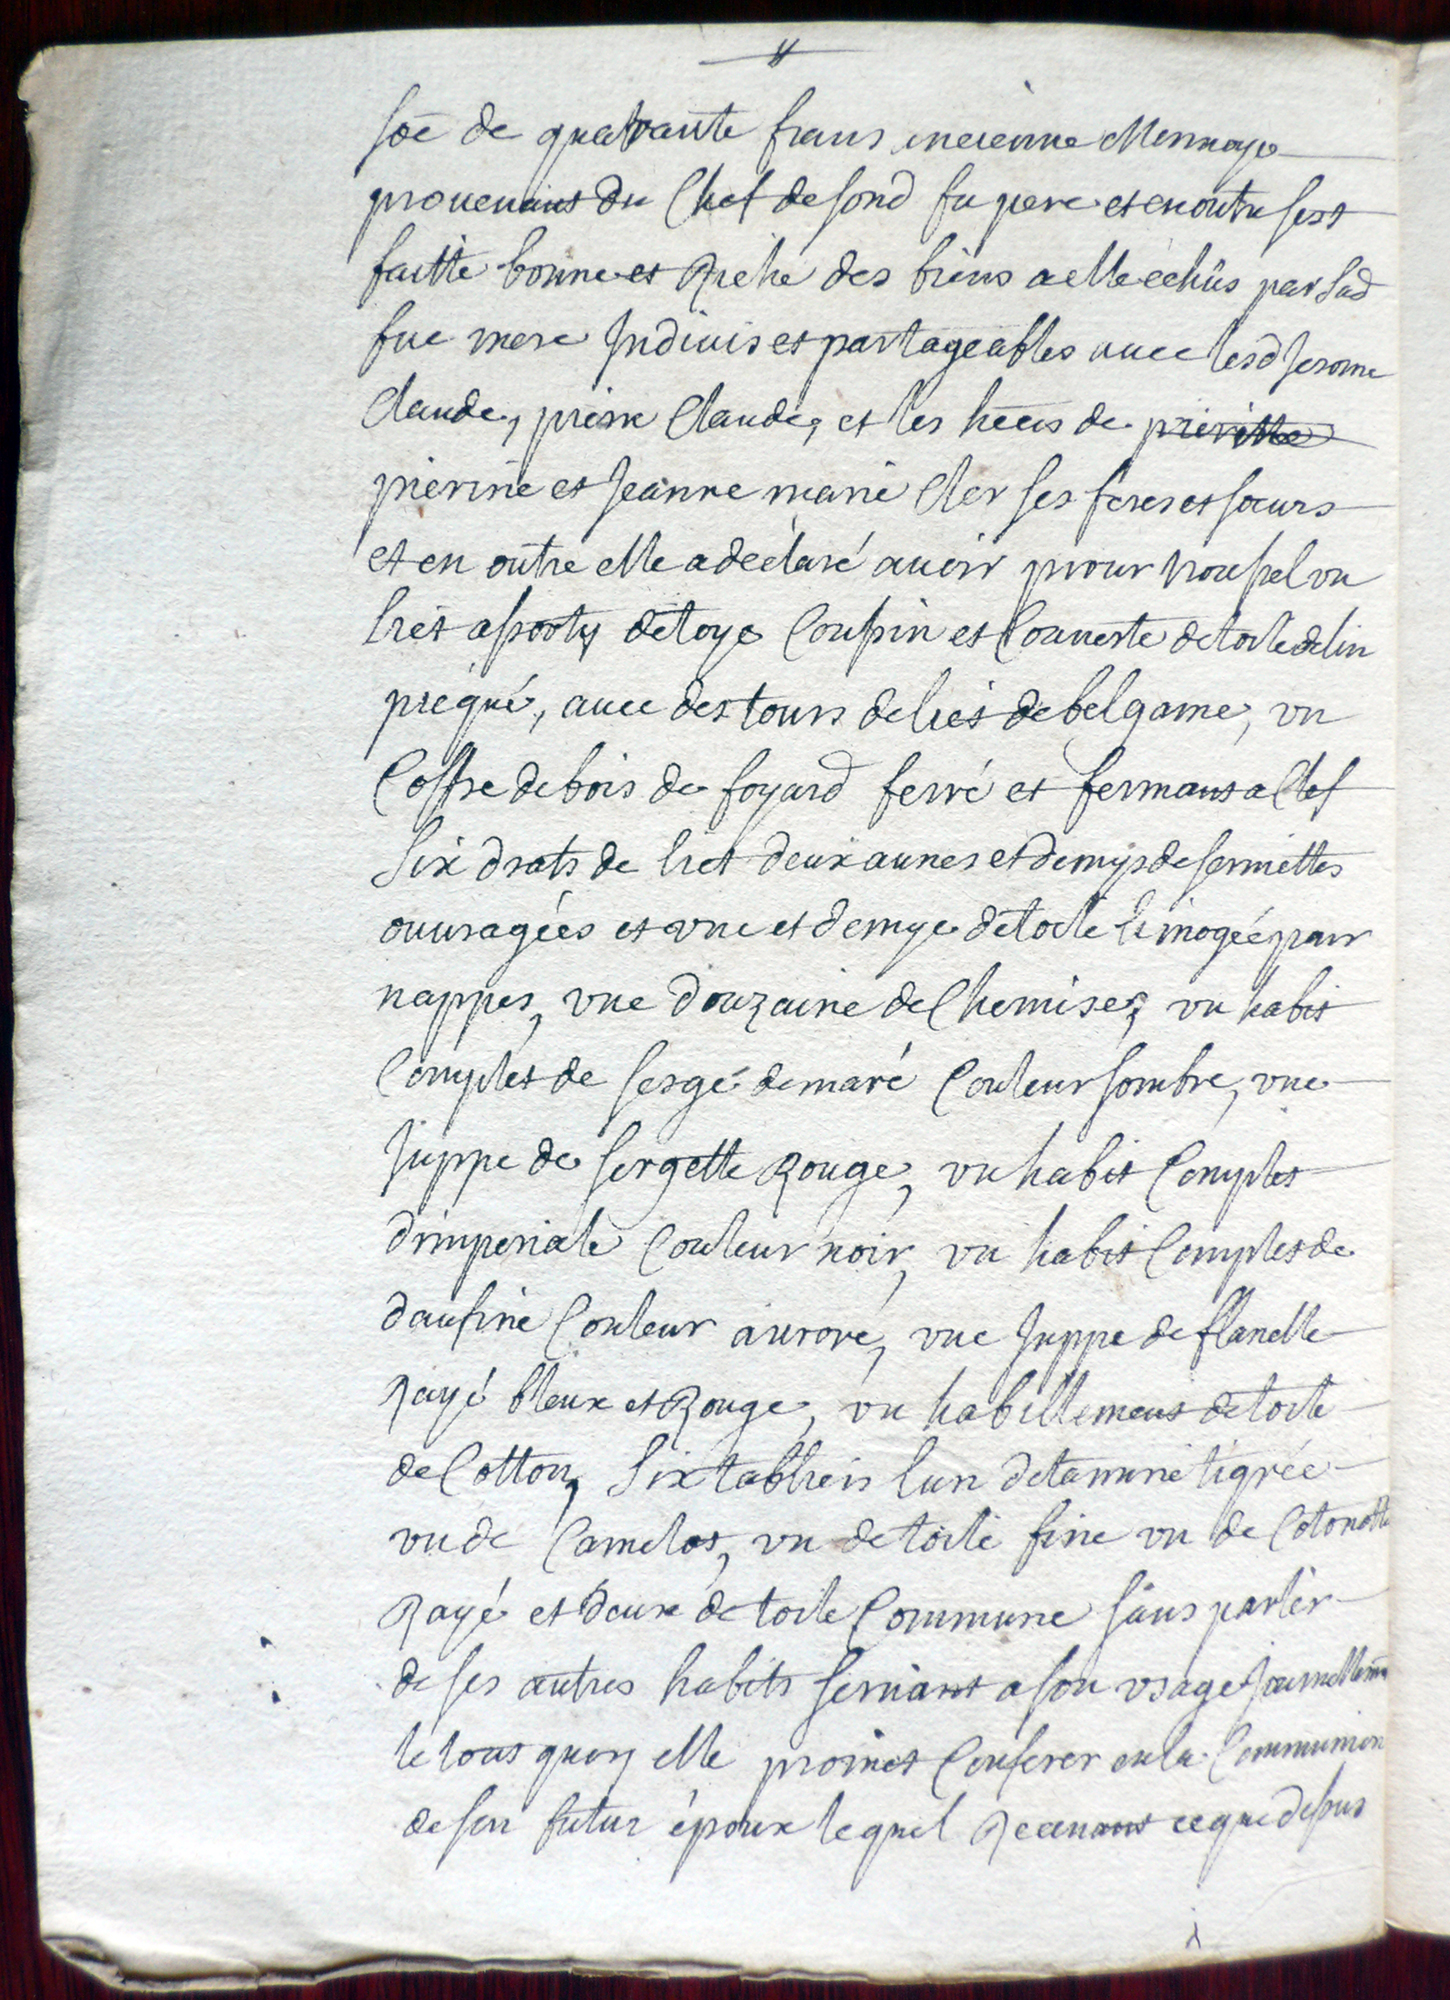 soē de quatrante frans encienne Monnoye
provenant du Chef de sond fu pere et en outre sest
faitte bonne et Riche des biens a elle echûs par sad
fue mere Jndivis et partageables avec lesd Jerome
Claude, pierre Claude, et les heērs de
pierrine et Jeanne marie Cler ses freres et sœurs
et en outre elle a déclaré avoir pour trousel vn
liet de toye Coussin et Couverte de toile de lin
piequé, avec des tours de liet de belgame, vn
Coffre de bois de foyard ferré et fermant a Clef
Six drats de liet deux aunes et demys de serviettes
ouvragées et vne et demye de toile limogée pour
nappes, vne douzaine de Chemises, vn habit
Complet de serge de maré Couleur sombre, vne
Juppe de sergette Rouge, vn habit Complet
d'imperiale Couleur noir, vn habit Complet de
daufine Couleur aurore, vne Juppe de flanelle
Rayé bleux et Rouge, vn habillement de toile
de Cotton, Six tabliers l'un detamine tigrée
vn de Camelot, vn de toile fine vn de Cotonotte
Rayé et deux de toile Commune sans parler
de ses autres habits servant a son vsage Journellemt
le tout quoy elle promet Conferer en la Communion
de son futur époux lequel Recevant ce que dessus